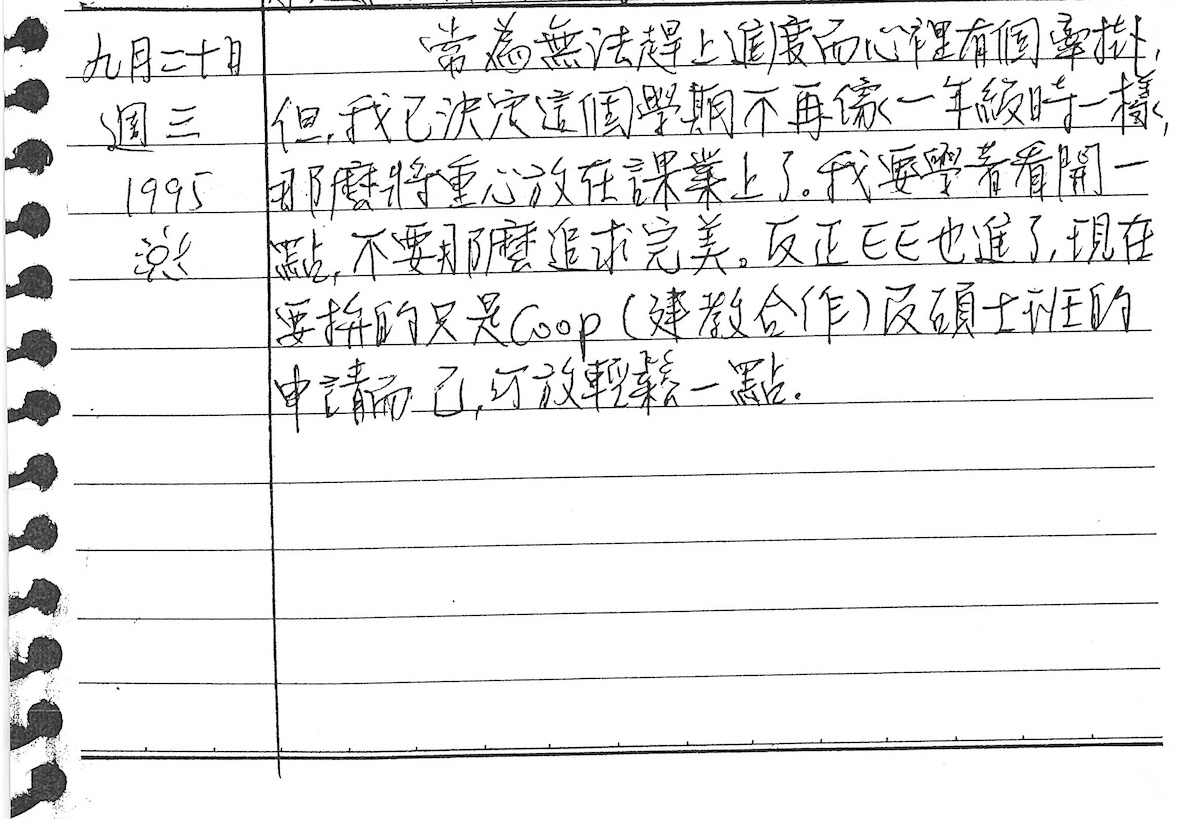 九月二十日
週三
1995
常為無法趕上進度而心裡有個牽掛,
但,我已決定這個學期不再像一年級時一樣,
那麼將重心放在課業上了。我要學著看開一
點,不要那麼追求完美。反正EE也進了,現在
要拚的只是Coop(建教合作)及碩士班的
申請而已,可放輕鬆一點.